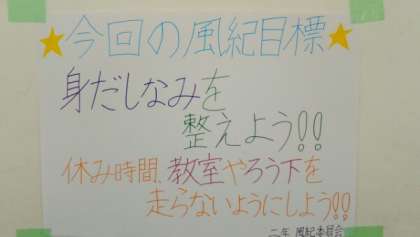 ★今回の風紀目標★
身だしなみを
整えよう!!
休み時間、教室やろう下を
走らないようにしよう!!
二年 風紀委員会